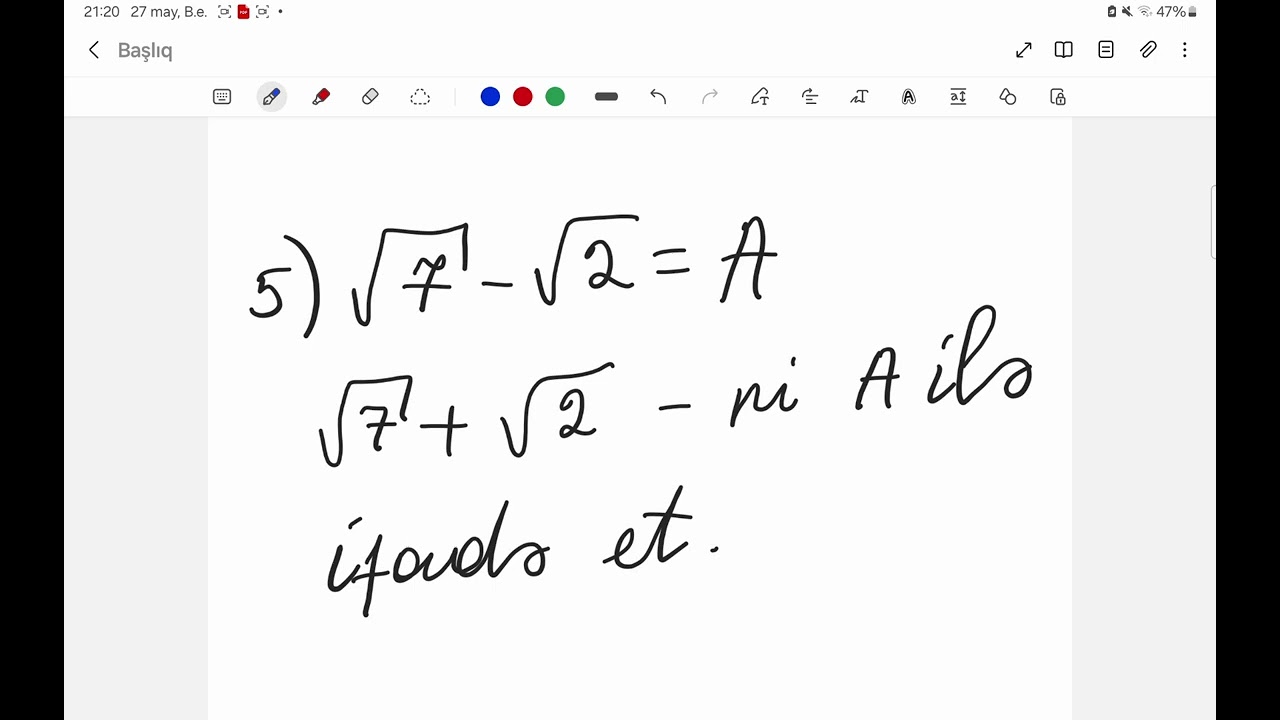 21:20 27 may, B.e. 47%
Başlıq
5) √7 - √2 = A
√7 + √2 - ni A ilə
ifadə et.